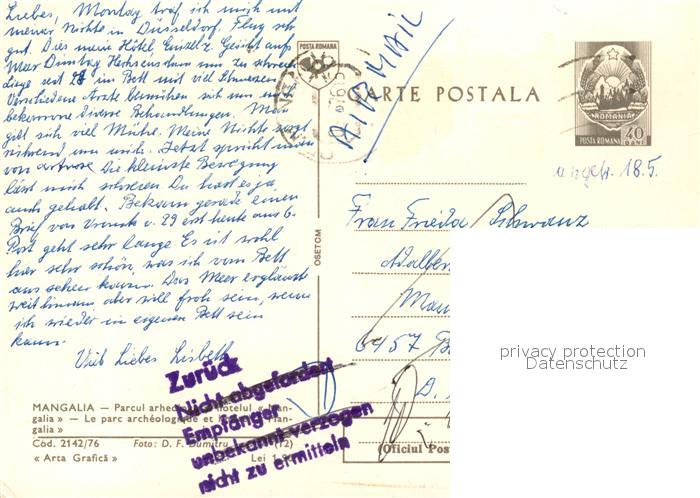 Liebes, Montag traf ich mich mit
meiner Nichte in Düsseldorf. Flug sehr
gut. Dies mein Hotel, Einzelz. Gesicht aufs
Meer Dienstag
liege seit im Bett mit viel Schmerzen
Verschiedene Ärzte bemühen sich um mich
bekomme diverse Behandlungen. Man
gibt sich viel Mühe. Meine Nichte sorgt
rührend um mich. Jetzt spricht man
von Artrose Die kleinste Bewegung
lässt mich schreien Du hast es ja
auch gehabt. Bekam gerade einen
Brief von v. 29 erst heute aus 6.
Post geht sehr lange Es ist wohl
hier sehr schön, was ich vom Bett
aus sehen kann. Das Meer erglänzt
weit hinaus, aber will froh sein, wenn
ich wieder in eigenen Bett sein
kann.
Viel Liebes Lisbeth
MANGALIA — Parcul arheologic hotelul « Man-
galia » — Le parc archéologique et Man-
galia »
Cod. 2142/76 Foto: D. F. Dumitru (12)
« Arta Grafică » Lei 1
Zurück
Nicht abgefordert
Empfänger
unbekannt verzogen
nicht zu ermitteln
OSETCM
POSTA ROMANA
AIRMAIL
CARTE POSTALA
ROMANIA
POSTA ROMANA 40 BANI
angek. 18.5.
Frau Frieda Schwanz
Adalber
6457
(Oficiul Pos
privacy protection
Datenschutz